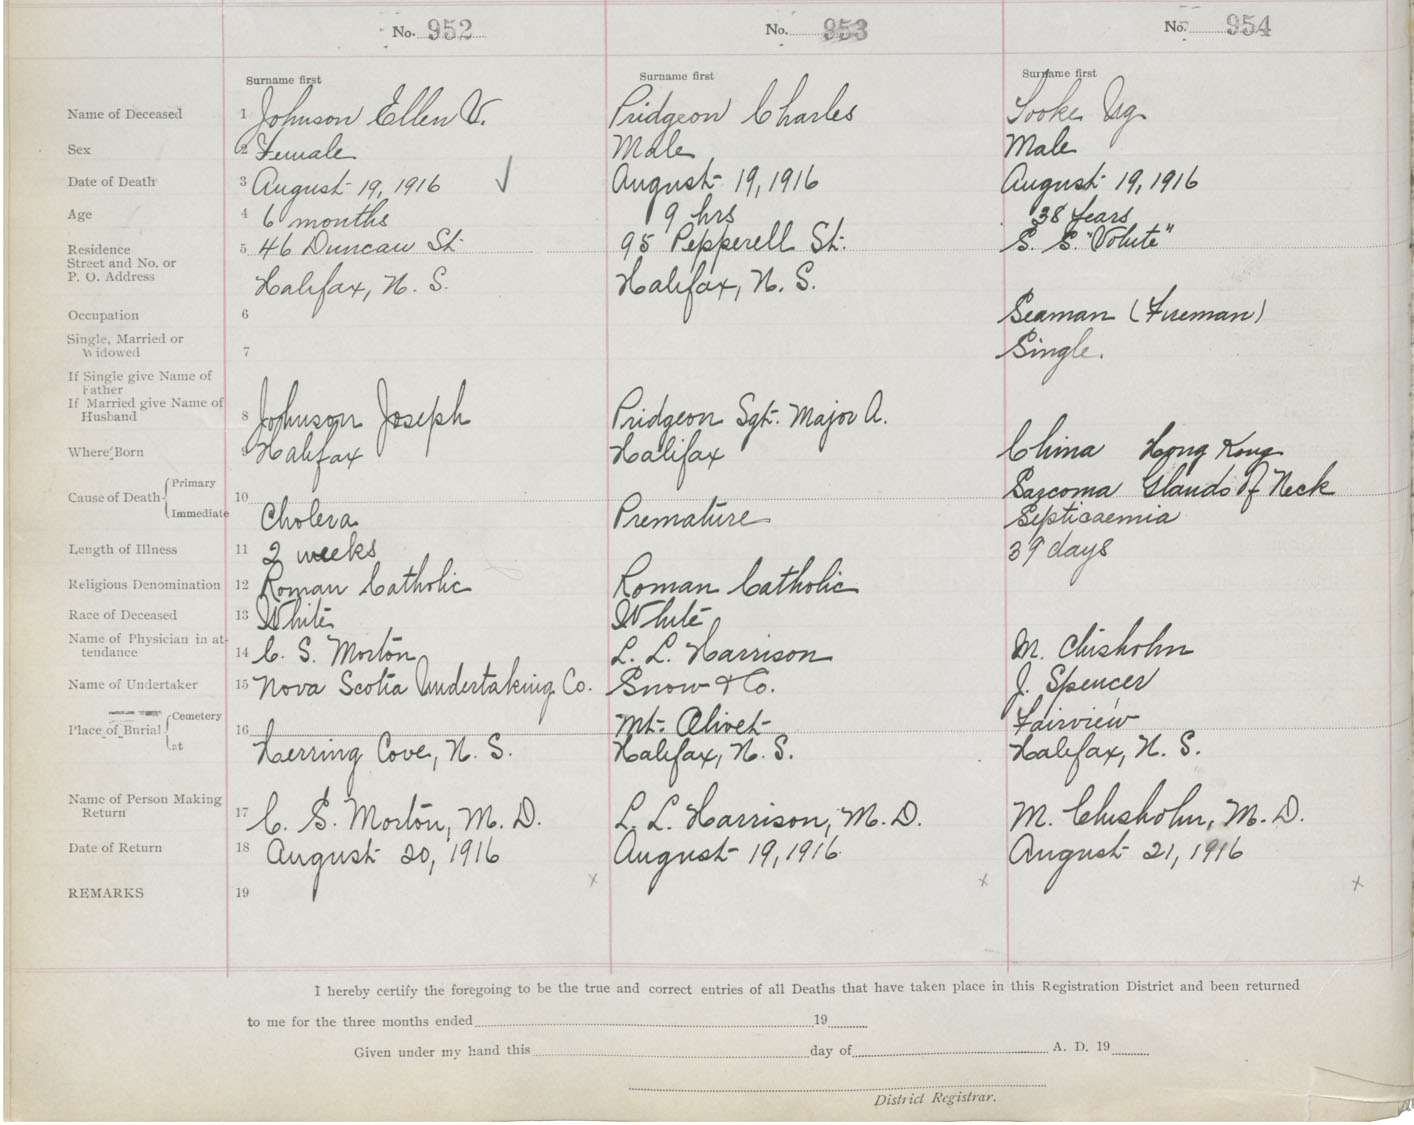 No. 952
No. 953
No. 954
Surname first
Surname first
Surname first
Name of Deceased 1 Johnson Ellen V. Pridgeon Charles Tooke Ng
Sex 2 Female Male Male
Date of Death 3 August 19, 1916 ✓ August 19, 1916 August 19, 1916
Age 4 6 months 9 hrs 38 Years
Residence 5 46 Duncan St. 95 Pepperell St. S. S. "Volute"
Street and No. or
P. O. Address Halifax, N. S. Halifax, N. S.
Occupation 6 Seaman (Fireman)
Single, Married or
Widowed 7 Single.
If Single give Name of
Father
If Married give Name of
Husband 8 Johnson Joseph Pridgeon Sgt. Major A.
Where Born 9 Halifax Halifax China Hong Kong
Cause of Death Primary 10 Sarcoma Glands of Neck
Immediate Cholera Premature Septicaemia
Length of Illness 11 2 weeks 39 days
Religious Denomination 12 Roman Catholic Roman Catholic
Race of Deceased 13 White White
Name of Physician in at-
tendance 14 C. S. Morton L. L. Harrison M. Chisholm
Name of Undertaker 15 Nova Scotia Undertaking Co. Snow & Co. J. Spencer
Place of Burial Cemetery 16 Mt. Olivet Fairview
at Herring Cove, N. S. Halifax, N. S. Halifax, N. S.
Name of Person Making
Return 17 C. S. Morton, M. D. L. L. Harrison, M. D. M. Chisholm, M. D.
Date of Return 18 August 20, 1916 August 19, 1916 August 21, 1916
x x x
REMARKS 19
I hereby certify the foregoing to be the true and correct entries of all Deaths that have taken place in this Registration District and been returned
to me for the three months ended 19
Given under my hand this day of A. D. 19
District Registrar.